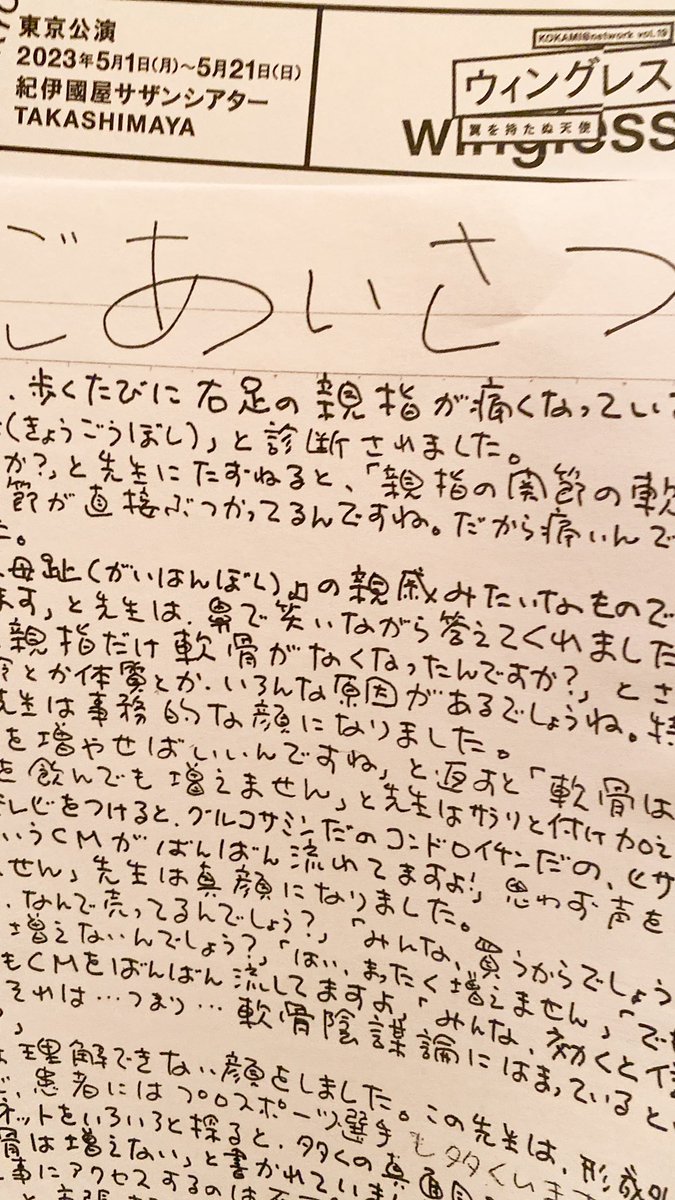 東京公演
2023年5月1日(月)~5月21日(日)
紀伊國屋サザンシアター
TAKASHIMAYA
KOKAMI@network vol.19
ウィングレス
翼を持たぬ天使
wingless
ごあいさつ
、歩くたびに右足の親指が痛くなってい
(きょうごうぼし)」と診断されました。
か?」と先生にたずねると、「親指の関節の軟
節が直接ぶつかってるんですね。だから痛いんで
た。
母趾(がいはんぼし)』の親戚みたいなもので
ます」と先生は、鼻で笑いながら答えてくれました
親指だけ軟骨がなくなったんですか?」とさ
とか体質とか、いろんな原因があるでしょうね。特
先生は事務的な顔になりました。
を増やせばいいんですね」と返すと「軟骨は
を飲んでも増えません」と先生はサラリと付け加え
テレビをつけると、グルコサミンだのコンドロイチンだの、ヒサ
いうCMがばんばん流れてますよ!」思わず声を
せん」先生は真顔になりました。
、なんで売ってるんでしょう?」「みんな、買うからでしょう
増えないんでしょう?」「はい、まったく増えません」「で
もCMをばんばん流してますよ」「みんな、効くと信
それは…つまり…軟骨陰謀論にはまっていると
」
理解できない顔をしました。この先生は、形成
、患者にはプロスポーツ選手も多くいま
ネットをいろいろと探ると、多くの真面目
骨は増えない」と書かれていま
事にアクセスするのは